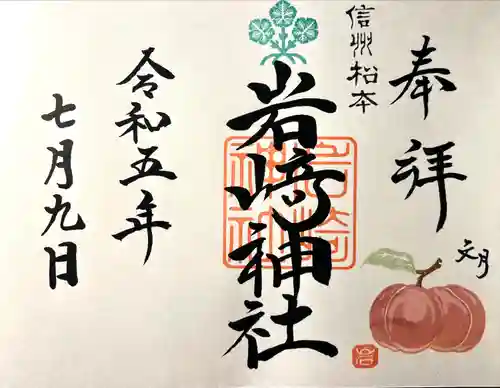 奉拝
文月
信州松本
岩﨑神社
岩崎神社
令和五年
七月九日
岩